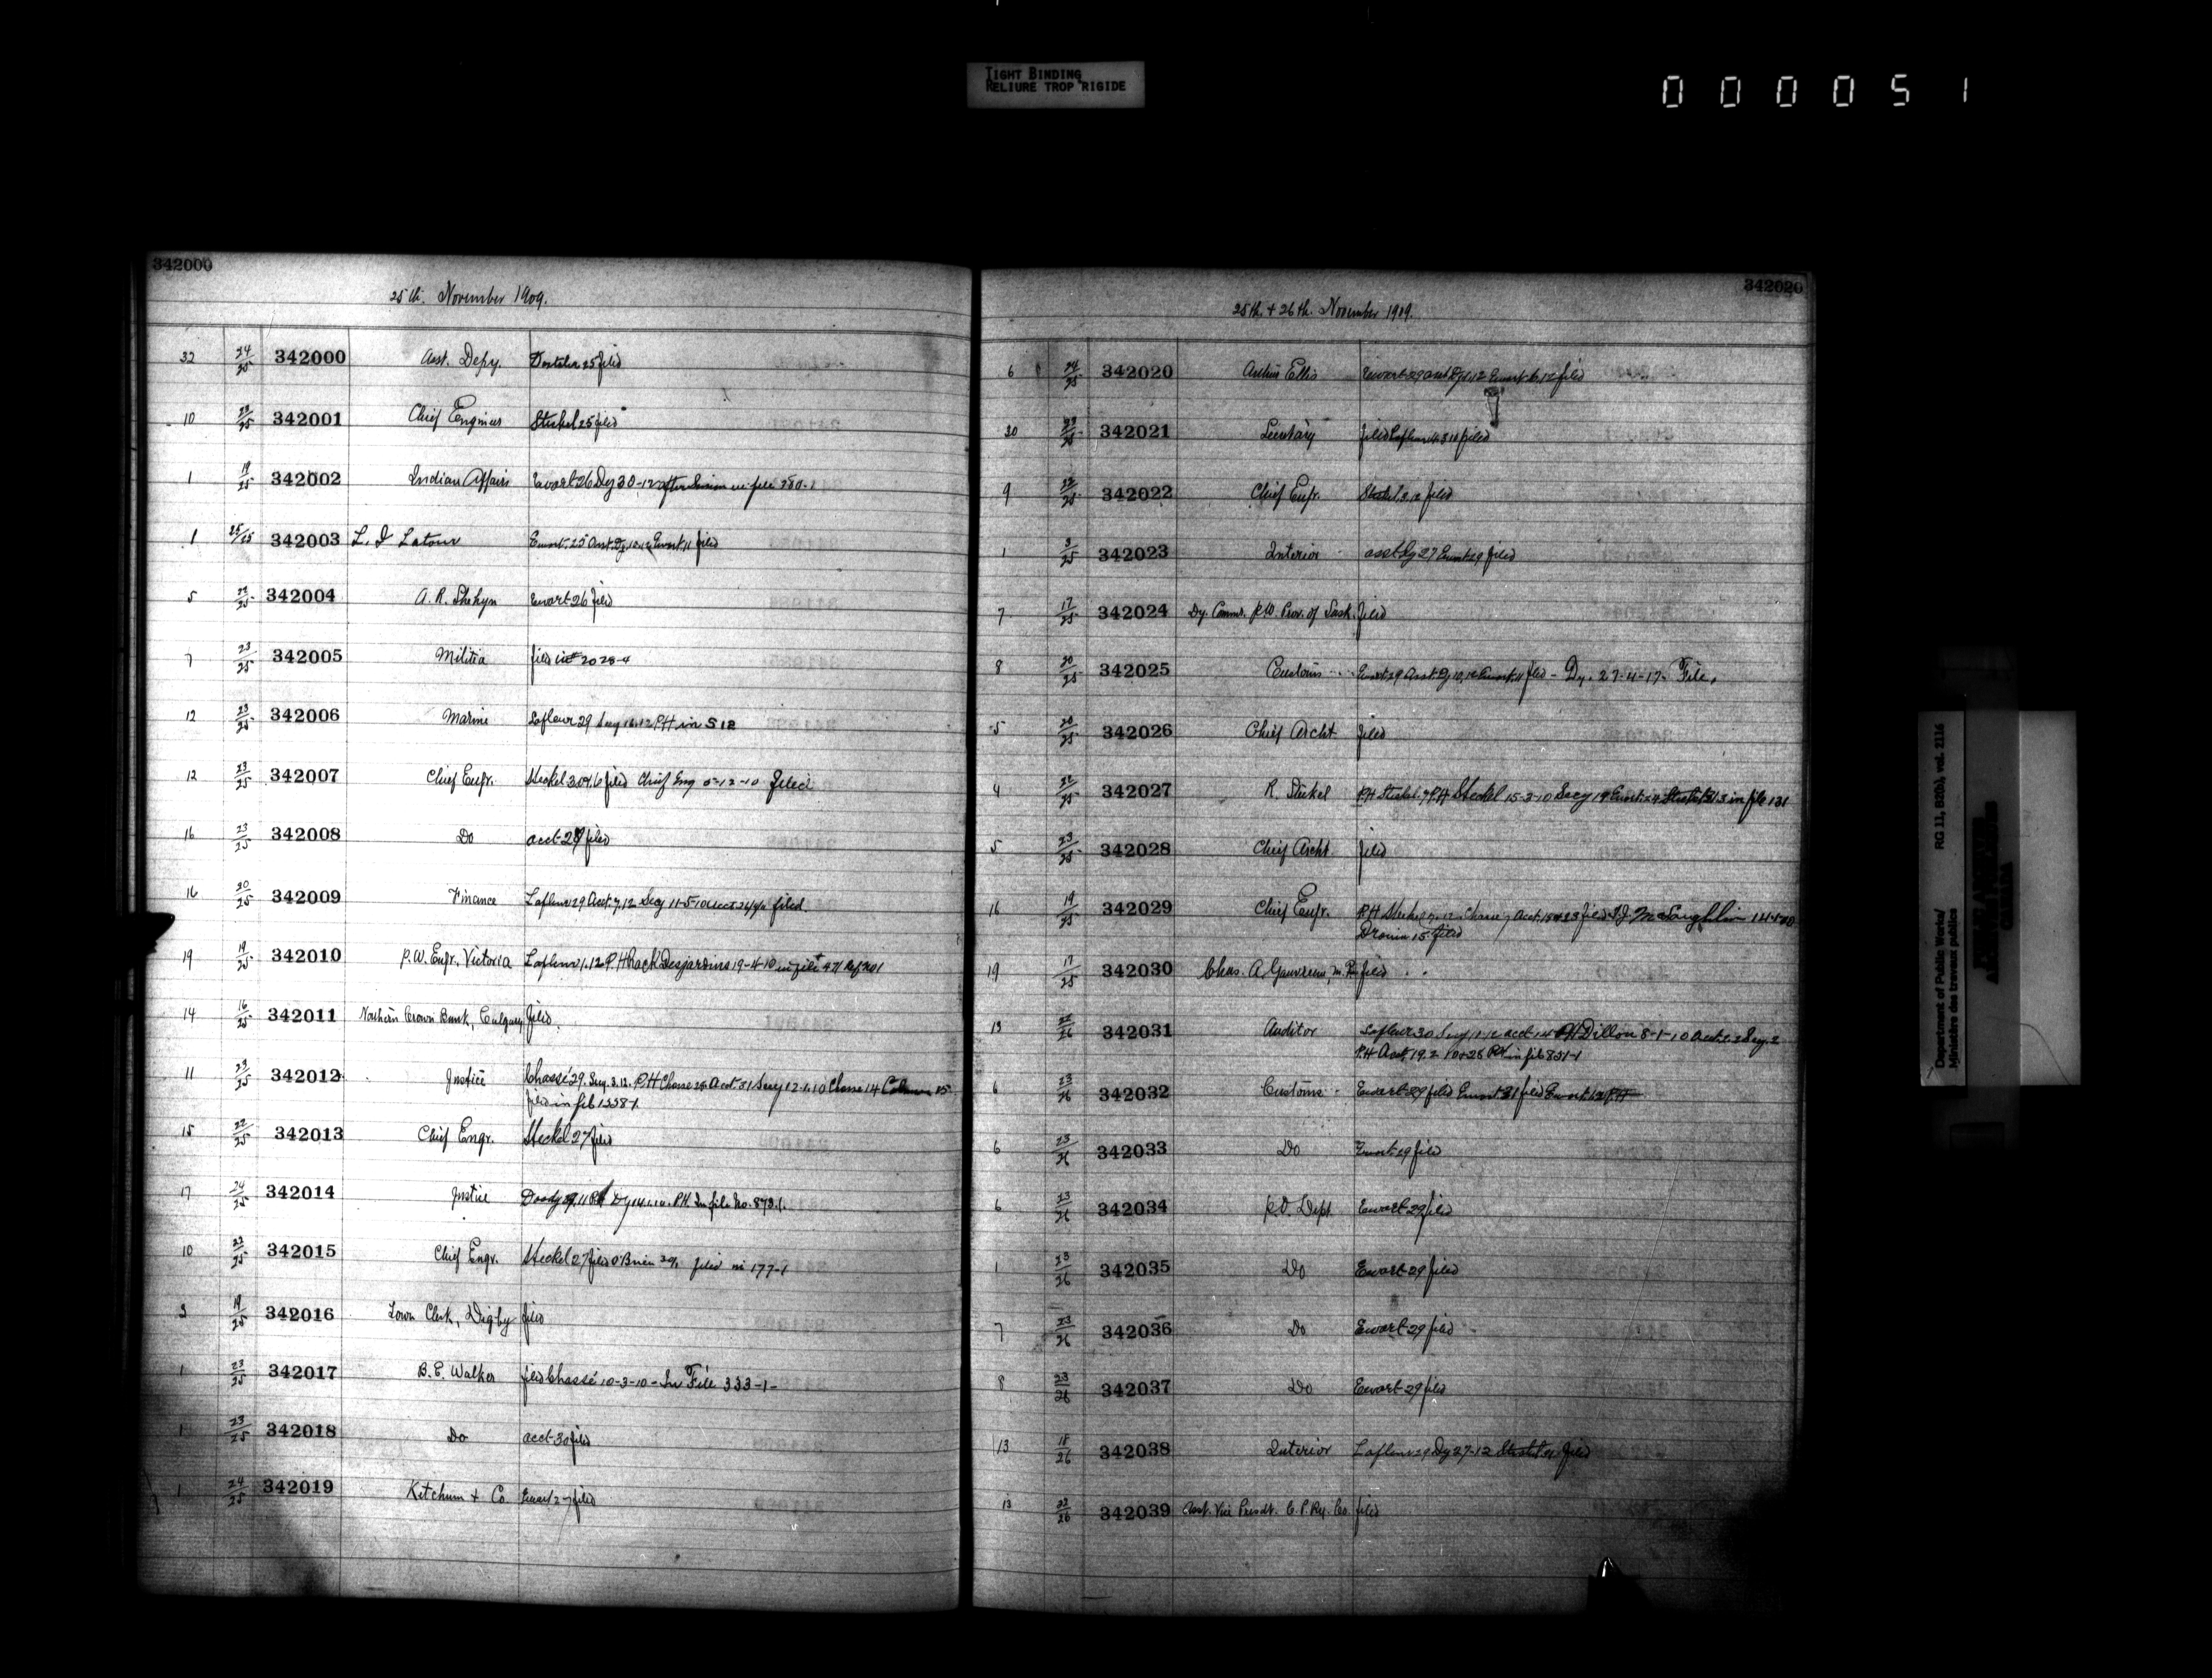 TIGHT BINDING
RELIURE TROP RIGIDE
000051
342000
25th. November 1909.
32 24/25 342000 Asst. Depy. 25 filed
10 23/25 342001 Chief Engineer Steckel 25 filed
1 19/25 342002 Indian Affairs Ewart 26 Dy 30-12 after Session in file 280-1
1 25/25 342003 L. J. Latour Ewart 25 Asst. Dy. 10-12 Ewart 11 filed
5 22/25 342004 A. R. Shehyn Ewart 26 filed
7 23/25 342005 Militia filed in 2028-4
12 23/25 342006 Marine Lafleur 29 Secy 16.12 P.H in 512
12 23/25 342007 Chief Engr. Steckel 30 filed Chief Eng 5-12-10 filed
16 23/25 342008 Do acct 29 filed
16 20/25 342009 Finance Lafleur 29 Acct. 7.12 Secy 11-5-10 acct filed.
19 19/25 342010 P.W. Engr. Victoria Lafleur 1.12 P.H Rack Desjardins 19-4-10 in file 471 Ref 201
14 16/25 342011 Northern Crown Bank, Calgary filed.
11 23/25 342012 Justice Chassé 29. Secy. 3.12. P.H Chasse 28 Acct. 31 Secy 12.1.10 Chasse 14 15
filed in file 1558-1
15 22/25 342013 Chief Engr. Steckel 27 filed
17 24/25 342014 Justice Doody 29.11 P.H Dy 14.1.10. P.H. In file No. 873.1.
10 22/25 342015 Chief Engr. Steckel 27 filed O'Brien filed in 177-1
3 19/25 342016 Town Clerk, Digby filed
1 23/25 342017 B. E. Walker filed Chassé 10-3-10 - In File 333-1-
1 23/25 342018 Do acct 30 filed
1 24/25 342019 Ketchum & Co. Ewart 27 filed
342020
25th. & 26th. November 1909.
6 24/25 342020 Arthur Ellis Ewart 29 asst Dy 1.12 Ewart 6.12 filed
30 23/25 342021 Secretary filed Lafleur filed
9 22/25 342022 Chief Engr. Steckel 3.12 filed
1 3/25 342023 Interior asst Dy 27 Ewart 29 filed
7 17/25 342024 Dy. Commr. P.W. Prov. of Sask. filed
8 20/25 342025 Customs Ewart 29 Asst. Dy 10.12 Ewart 11 filed - Dy. 27-4-17- File.
5 20/25 342026 Chief Archt. filed
4 22/25 342027 R. Steckel P.H Steckel 7 P.H Steckel 15-3-10 Secy 19 Ewart 24 in file 131
5 23/25 342028 Chief Archt. filed
16 19/25 342029 Chief Engr. P.H Steckel 7.12 Chasse 7 Acct. 15 filed T.J. McLaughlin
Drouin 15 filed
19 17/25 342030 Chas. A. Gauvreau, M.P. filed
13 22/26 342031 Auditor Lafleur 30 Secy. 1.12 acct. 14 P.H Dillon 8-1-10 Acct. Secy. 2
P.H Acct. 19.2 P.H in file 831-1
6 23/26 342032 Customs Ewart 29 filed Ewart 31 filed Ewart P.H
6 23/26 342033 Do Ewart 29 filed
6 23/26 342034 P.O. Dept. Ewart 29 filed
1 23/26 342035 Do Ewart 29 filed
7 23/26 342036 Do Ewart 29 filed
8 23/26 342037 Do Ewart 29 filed
13 18/26 342038 Interior Lafleur 29 Dy 27-12 Steckel filed
13 22/26 342039 Asst. Vice Presdt. C. P. Ry. Co. filed
Department of Public Works/
Ministère des travaux publics
RG 11, B2(b), vol. 2116